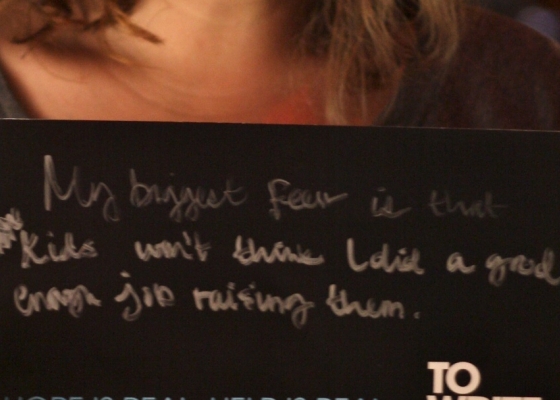 My biggest fear is that
Kids won't think I did a good
enough job raising them.
TO
WRITE
HOPE IS REAL. HELP IS REAL.